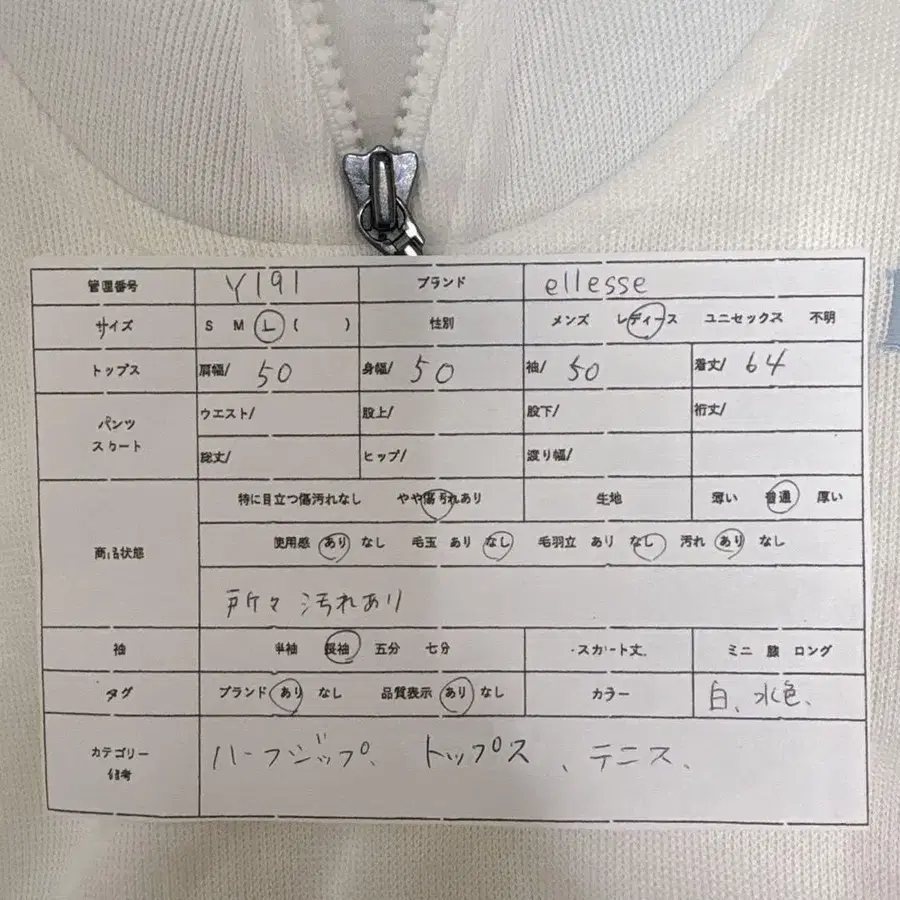 管理番号 Y191 ブランド ellesse
サイズ S M L ( ) 性別 メンズ レディース ユニセックス 不明
トップス 肩幅/ 50 身幅/ 50 袖/ 50 着丈/ 64
パンツ ウエスト/ 股上/ 股下/ 裄丈/
スカート 総丈/ ヒップ/ 渡り幅/
特に目立つ傷汚れなし やや傷汚れあり 生地 薄い 普通 厚い
商品状態 使用感 あり なし 毛玉 あり なし 毛羽立 あり なし 汚れ あり なし
所々 汚れあり
袖 半袖 長袖 五分 七分 スカート丈 ミニ 膝 ロング
タグ ブランド あり なし 品質表示 あり なし カラー 白、水色、
カテゴリー ハーフジップ、トップス、テニス、
備考